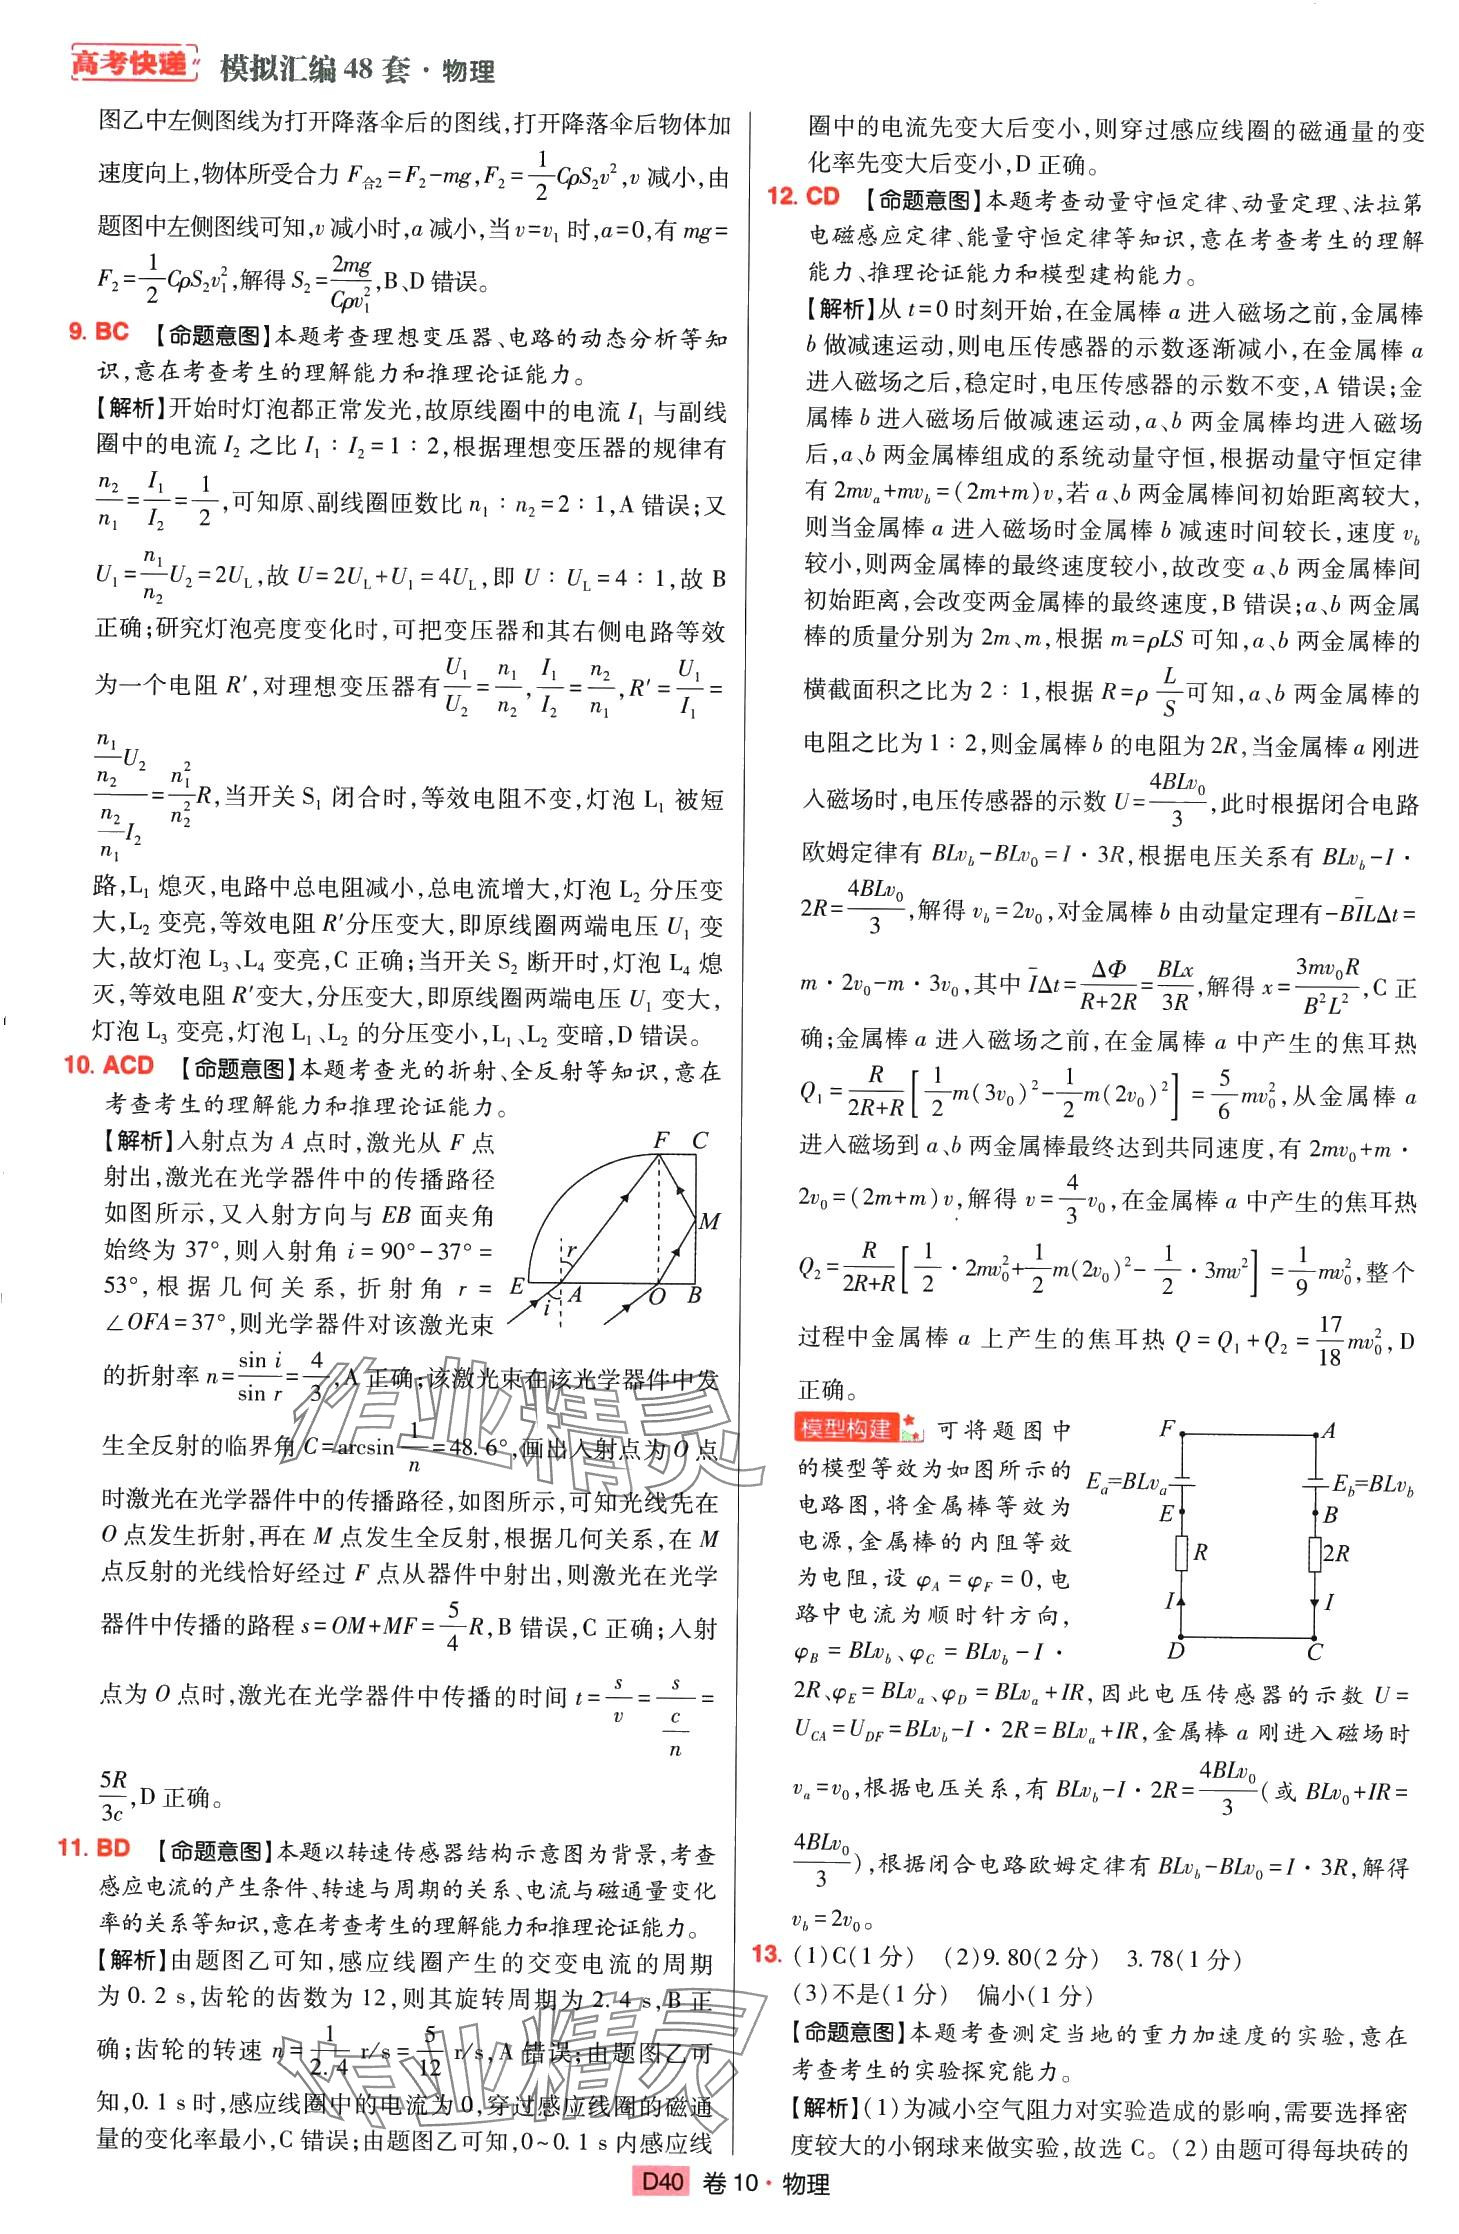 高考快递 模拟汇编48套·物理
图乙中左侧图线为打开降落伞后的图线,打开降落伞后物体加
速度向上,物体所受合力 F合2=F₂-mg,F₂=1/2CρS₂v²,v 减小,由
题图中左侧图线可知,v 减小时,a 减小,当 v=v₁ 时,a=0,有 mg=
F₂=1/2CρS₂v₁²,解得 S₂=2mg/Cρv₁²,B、D 错误。
9. BC 【命题意图】本题考查理想变压器、电路的动态分析等知
识,意在考查考生的理解能力和推理论证能力。
【解析】开始时灯泡都正常发光,故原线圈中的电流 I₁ 与副线
圈中的电流 I₂ 之比 I₁∶I₂=1∶2,根据理想变压器的规律有
n₂/n₁=I₁/I₂=1/2,可知原、副线圈匝数比 n₁∶n₂=2∶1,A 错误;又
U₁=n₁/n₂U₂=2U_L,故 U=2U_L+U₁=4U_L,即 U∶U_L=4∶1,故 B
正确;研究灯泡亮度变化时,可把变压器和其右侧电路等效
为一个电阻 R′,对理想变压器有U₁/U₂=n₁/n₂,I₁/I₂=n₂/n₁,R′=U₁/I₁=
(n₁/n₂U₂)/(n₂/n₁I₂)=n₁²/n₂²R,当开关 S₁ 闭合时,等效电阻不变,灯泡 L₁ 被短
路,L₁ 熄灭,电路中总电阻减小,总电流增大,灯泡 L₂ 分压变
大,L₂ 变亮,等效电阻 R′分压变大,即原线圈两端电压 U₁ 变
大,故灯泡 L₃、L₄ 变亮,C 正确;当开关 S₂ 断开时,灯泡 L₄ 熄
灭,等效电阻 R′变大,分压变大,即原线圈两端电压 U₁ 变大,
灯泡 L₃ 变亮,灯泡 L₁、L₂ 的分压变小,L₁、L₂ 变暗,D 错误。
10. ACD 【命题意图】本题考查光的折射、全反射等知识,意在
考查考生的理解能力和推理论证能力。
【解析】入射点为 A 点时,激光从 F 点
射出,激光在光学器件中的传播路径
如图所示,又入射方向与 EB 面夹角
始终为 37°,则入射角 i=90°-37°=
53°,根据几何关系,折射角 r=
∠OFA=37°,则光学器件对该激光束
F C
M
r
E A O B
i
的折射率 n=sin i/sin r=4/3,A 正确;该激光束在该光学器件中发
生全反射的临界角 C=arcsin 1/n=48.6°,画出入射点为 O 点
时激光在光学器件中的传播路径,如图所示,可知光线先在
O 点发生折射,再在 M 点发生全反射,根据几何关系,在 M
点反射的光线恰好经过 F 点从器件中射出,则激光在光学
器件中传播的路程 s=OM+MF=5/4R,B 错误,C 正确;入射
点为 O 点时,激光在光学器件中传播的时间 t=s/v=s/(c/n)=
5R/3c,D 正确。
11. BD 【命题意图】本题以转速传感器结构示意图为背景,考查
感应电流的产生条件、转速与周期的关系、电流与磁通量变化
率的关系等知识,意在考查考生的理解能力和推理论证能力。
【解析】由题图乙可知,感应线圈产生的交变电流的周期
为 0.2 s,齿轮的齿数为 12,则其旋转周期为 2.4 s,B 正
确;齿轮的转速 n=1/2.4 r/s=5/12 r/s,A 错误;由题图乙可
知,0.1 s 时,感应线圈中的电流为 0,穿过感应线圈的磁通
量的变化率最小,C 错误;由题图乙可知,0~0.1 s 内感应线
圈中的电流先变大后变小,则穿过感应线圈的磁通量的变
化率先变大后变小,D 正确。
12. CD 【命题意图】本题考查动量守恒定律、动量定理、法拉第
电磁感应定律、能量守恒定律等知识,意在考查考生的理解
能力、推理论证能力和模型建构能力。
【解析】从 t=0 时刻开始,在金属棒 a 进入磁场之前,金属棒
b 做减速运动,则电压传感器的示数逐渐减小,在金属棒 a
进入磁场之后,稳定时,电压传感器的示数不变,A 错误;金
属棒 b 进入磁场后做减速运动,a、b 两金属棒均进入磁场
后,a、b 两金属棒组成的系统动量守恒,根据动量守恒定律
有 2mvₐ+mv_b=(2m+m)v,若 a、b 两金属棒间初始距离较大,
则当金属棒 a 进入磁场时金属棒 b 减速时间较长,速度 v_b
较小,则两金属棒的最终速度较小,故改变 a、b 两金属棒间
初始距离,会改变两金属棒的最终速度,B 错误;a、b 两金属
棒的质量分别为 2m、m,根据 m=ρLS 可知,a、b 两金属棒的
横截面积之比为 2∶1,根据 R=ρ L/S可知,a、b 两金属棒的
电阻之比为 1∶2,则金属棒 b 的电阻为 2R,当金属棒 a 刚进
入磁场时,电压传感器的示数 U=4BLv₀/3,此时根据闭合电路
欧姆定律有 BLv_b-BLv₀=I·3R,根据电压关系有 BLv_b-I·
2R=4BLv₀/3,解得 v_b=2v₀,对金属棒 b 由动量定理有-BĪLΔt=
m·2v₀-m·3v₀,其中 ĪΔt=ΔΦ/(R+2R)=BLx/3R,解得 x=3mv₀R/B²L²,C 正
确;金属棒 a 进入磁场之前,在金属棒 a 中产生的焦耳热
Q₁=R/(2R+R)[1/2m(3v₀)²-1/2m(2v₀)²]=5/6mv₀²,从金属棒 a
进入磁场到 a、b 两金属棒最终达到共同速度,有 2mv₀+m·
2v₀=(2m+m)v,解得 v=4/3v₀,在金属棒 a 中产生的焦耳热
Q₂=R/(2R+R)[1/2·2mv₀²+1/2m(2v₀)²-1/2·3mv²]=1/9mv₀²,整个
过程中金属棒 a 上产生的焦耳热 Q=Q₁+Q₂=17/18mv₀²,D
正确。
模型构建 可将题图中
的模型等效为如图所示的
电路图,将金属棒等效为
电源,金属棒的内阻等效
为电阻,设 φ_A=φ_F=0,电
路中电流为顺时针方向,
φ_B=BLv_b、φ_C=BLv_b-I·
F A
Eₐ=BLvₐ E_b=BLv_b
E B
R 2R
I I
D C
2R、φ_E=BLvₐ、φ_D=BLvₐ+IR,因此电压传感器的示数 U=
U_CA=U_DF=BLv_b-I·2R=BLvₐ+IR,金属棒 a 刚进入磁场时
vₐ=v₀,根据电压关系,有 BLv_b-I·2R=4BLv₀/3(或 BLv₀+IR=
4BLv₀/3),根据闭合电路欧姆定律有 BLv_b-BLv₀=I·3R,解得
v_b=2v₀。
13. (1)C(1 分) (2)9.80(2 分) 3.78(1 分)
(3)不是(1 分) 偏小(1 分)
【命题意图】本题考查测定当地的重力加速度的实验,意在
考查考生的实验探究能力。
【解析】(1)为减小空气阻力对实验造成的影响,需要选择密
度较大的小钢球来做实验,故选 C。(2)由题可得每块砖的
作业精灵
作业精灵
D40 卷 10·物理